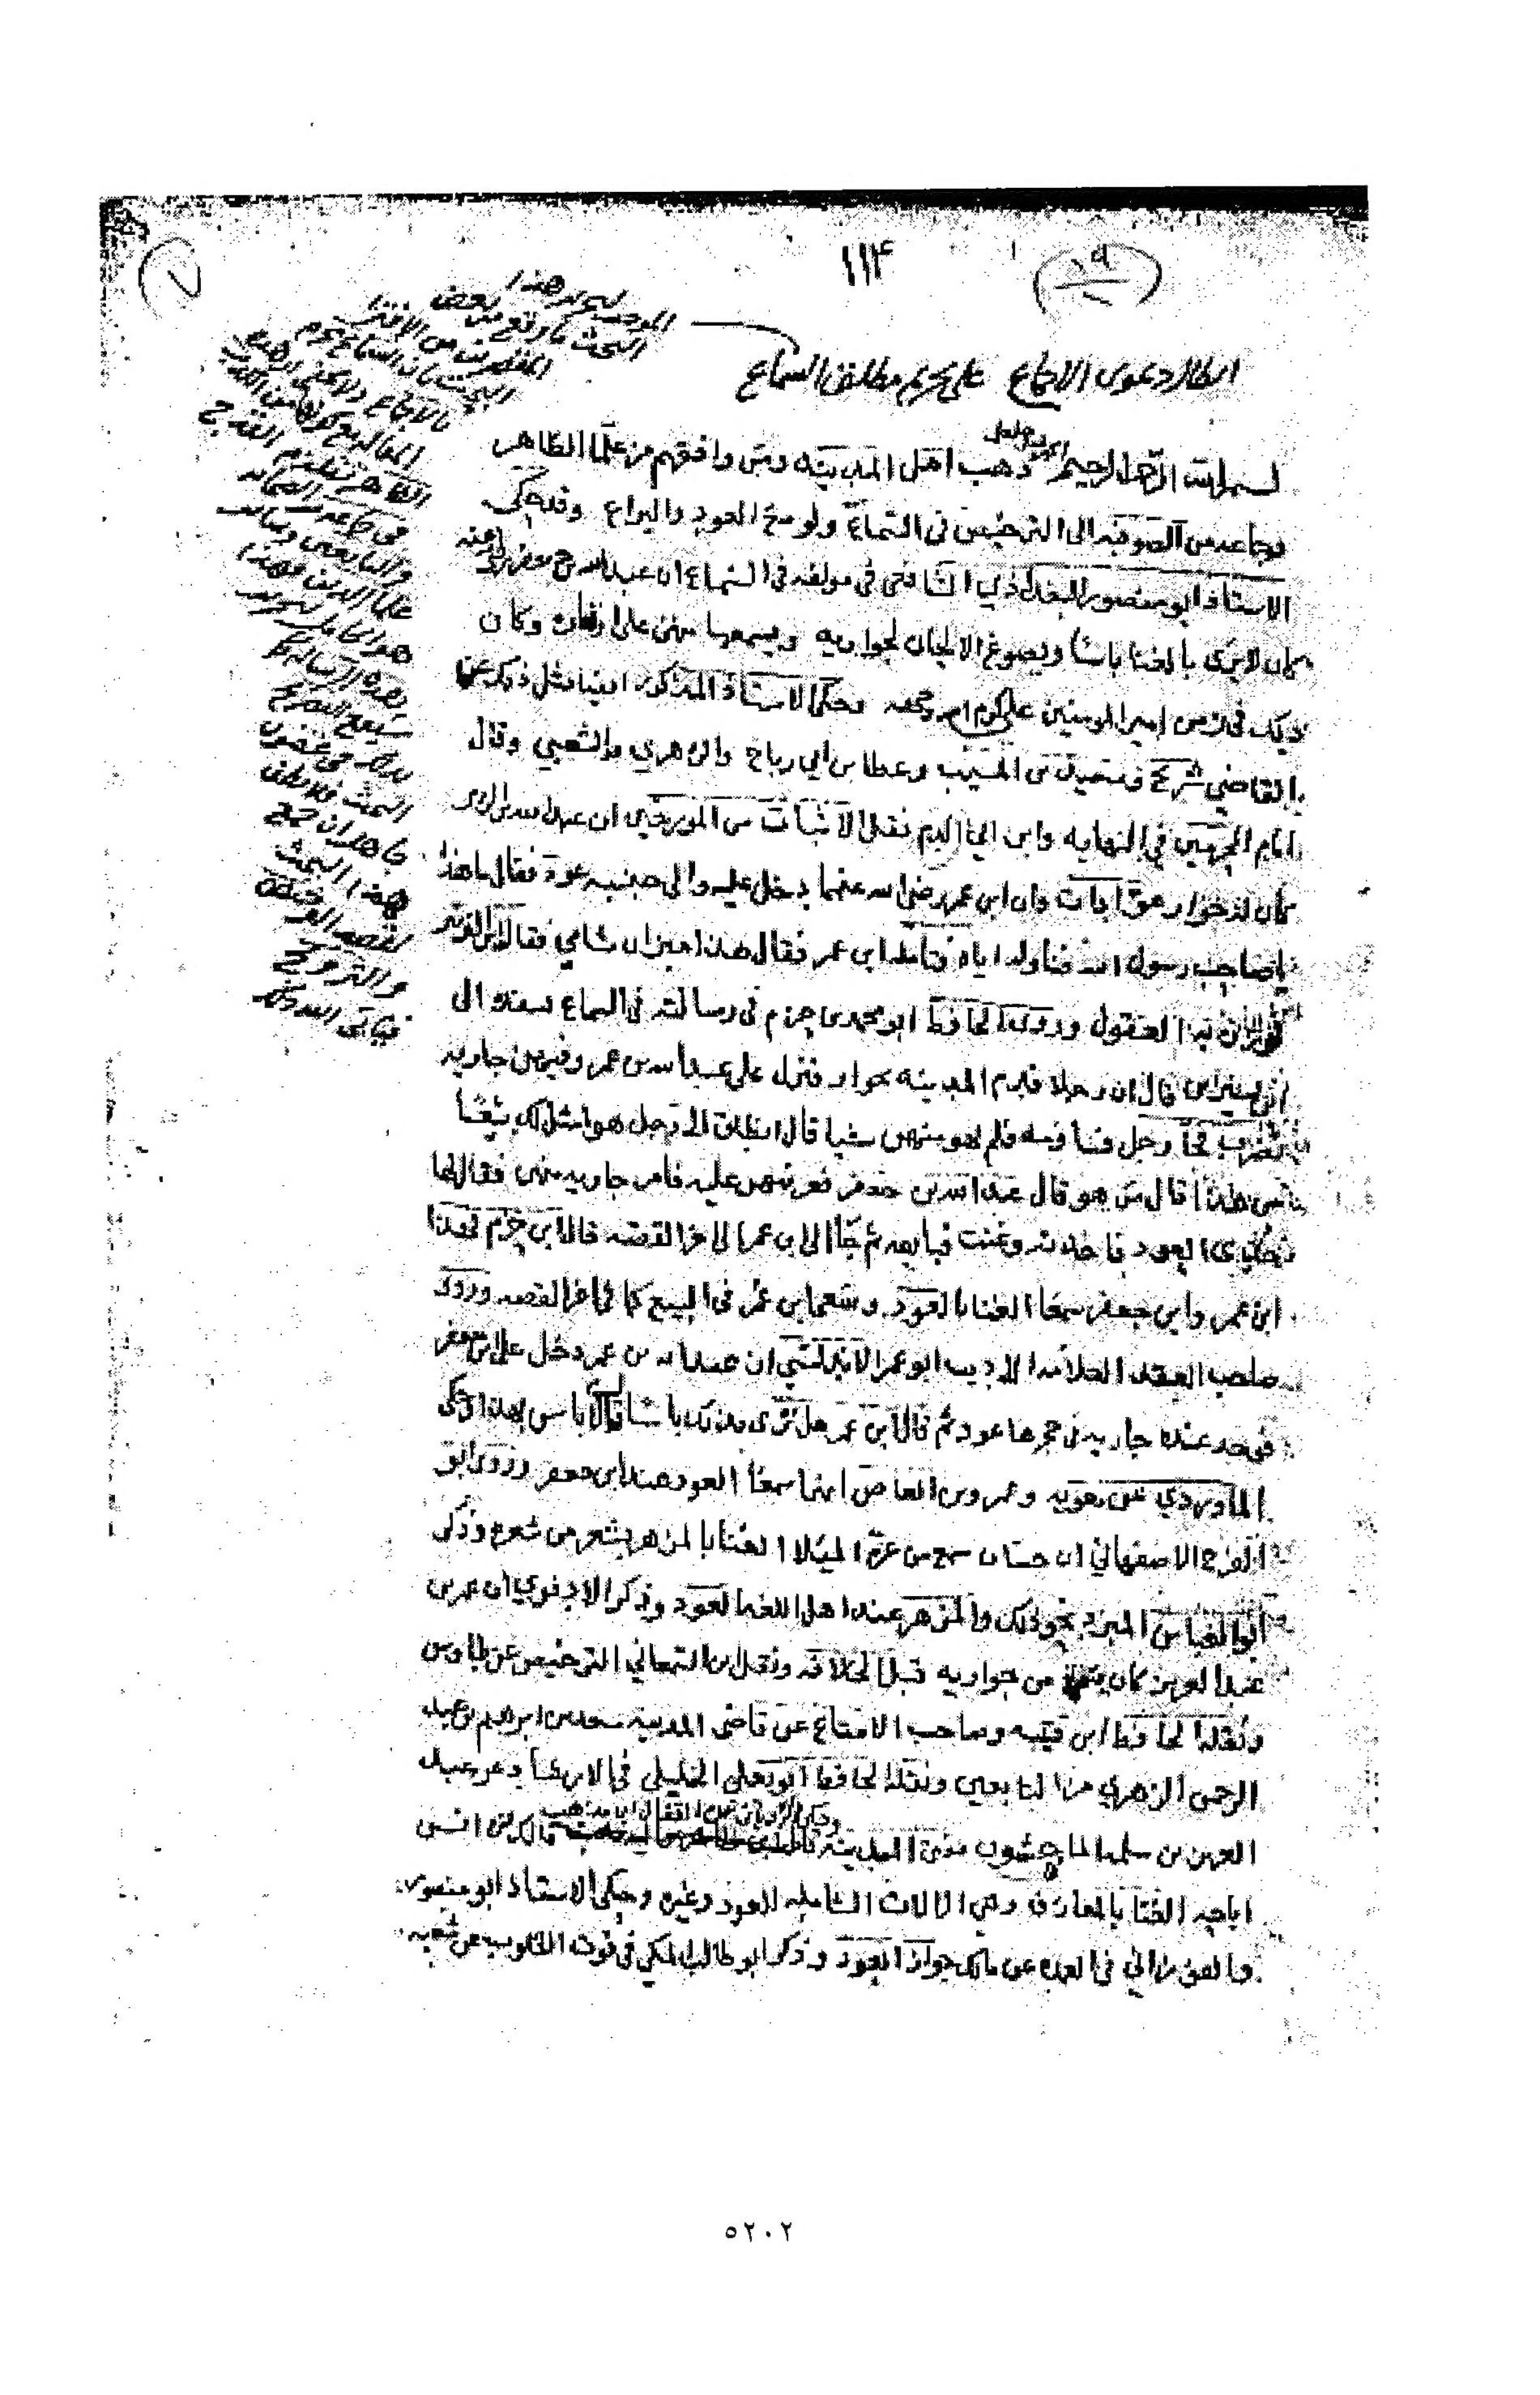 ١١٣
ابطال دعوى الاجماع على تحريم مطلق السماع
بسم الله الرحمن الرحيم ذهب اهل المدينة ومن وافقهم من علما الظاهر
وجماعة من الصوفيه الى الترخيص في السماع ولو مع العود واليراع وقد حكى
الاستاذ ابو منصور البغدادي الشافعي في مولفه في السماع ان عبد الله بن جعفر رضي الله عنه
كان لا يرى بالغنا باسًا ويصوغ الالحان لجواريه ويسمعها منهن على اوتاره وكان
ذلك في زمن امير المومنين علي كرم الله وجهه وحكى الاستاذ المذكور ايضا مثل ذلك عن
القاضي شريح وسعيد بن المسيب وعطا بن ابي رباح والزهري والشعبي وقال
امام الحرمين في النهايه وابن ابي الدم نقل الاثبات من المورخين ان عبد الله بن الزبير
كان له جوار عوّادات وان ابن عمر رضي الله عنهما دخل عليه والى جنبه عود فقال ما هذا
يا صاحب رسول الله فناوله اياه فتامله ابن عمر فقال هذا ميزان شامي فقال ابن الزبير
يوزن به العقول وروى الحافظ ابو محمد بن حزم في رسالته في السماع بسنده الى
ابن سيرين قال ان رجلا قدم المدينه بجوار فنزل على عبد الله بن عمر وفيهن جاريه
تضرب فجآ رجل فساومه فلم يهو منهن شيا قال انطلق الى رجل هو امثل لك بيعًا
من هذا قال من هو قال عبد الله بن جعفر فعرضهن عليه فامر جاريه منهن فقال لها
خذي العود فاخذته وغنت فبايعه ثم جآ الى ابن عمر الى اخر القصه قال ابن حزم فهذا
ابن عمر وابن جعفر سمعا الغنا بالعود وسعى ابن عمر في البيع كما في اخر القصه وروى
صاحب العقد العلامه الاديب ابو عمر الاندلسي ان عبد الله بن عمر دخل على ابن جعفر
فوجد عنده جاريه في حجرها عود ثم قال لابن عمر هل ترى بذلك باسًا قال لا باس بهذا وحكى
الماوردي عن معويه وعمرو بن العاص انهما سمعا العود عند ابن جعفر وروى ابو
الفرج الاصفهاني ان حسان سمع من عزة الميلا الغنا بالمزهر بشعر من شعره وذكر
ابو العباس المبرد نحو ذلك والمزهر عند اهل اللغه العود وذكر الادفوي ان عمر بن
عبد العزيز كان يسمع من جواريه قبل الخلافه ونقل ابن السمعاني الترخيص عن طاوس
ونقله الحافظ ابن قتيبه وصاحب الامتاع عن قاضي المدينه سعد بن ابرهيم بن عبد
الرحمن الزهري من التابعين ونقله الحافظ ابو يعلى الخليلي في الارشاد عن عبد
العزيز بن سلمه الماجشون مفتي المدينه وحكى الروياني عن القفال ان مذهب مالك بن انس
اباحه الغنا بالمعازف وهي الالات الشامله للعود وغيره وحكى الاستاذ ابو منصور
والفوراني في العمده عن مالك جواز العود وذكر ابو طالب المكي في قوت القلوب عن شعبه
الموجب لتحرير هذا
البحث ما وقع من بعض
في جماعة من الصحابه
والتابعين وساير
علما الدين فهذا
هو الحامل لتحرير
هذه الرساله
هذا البحث
٥٢٠٢